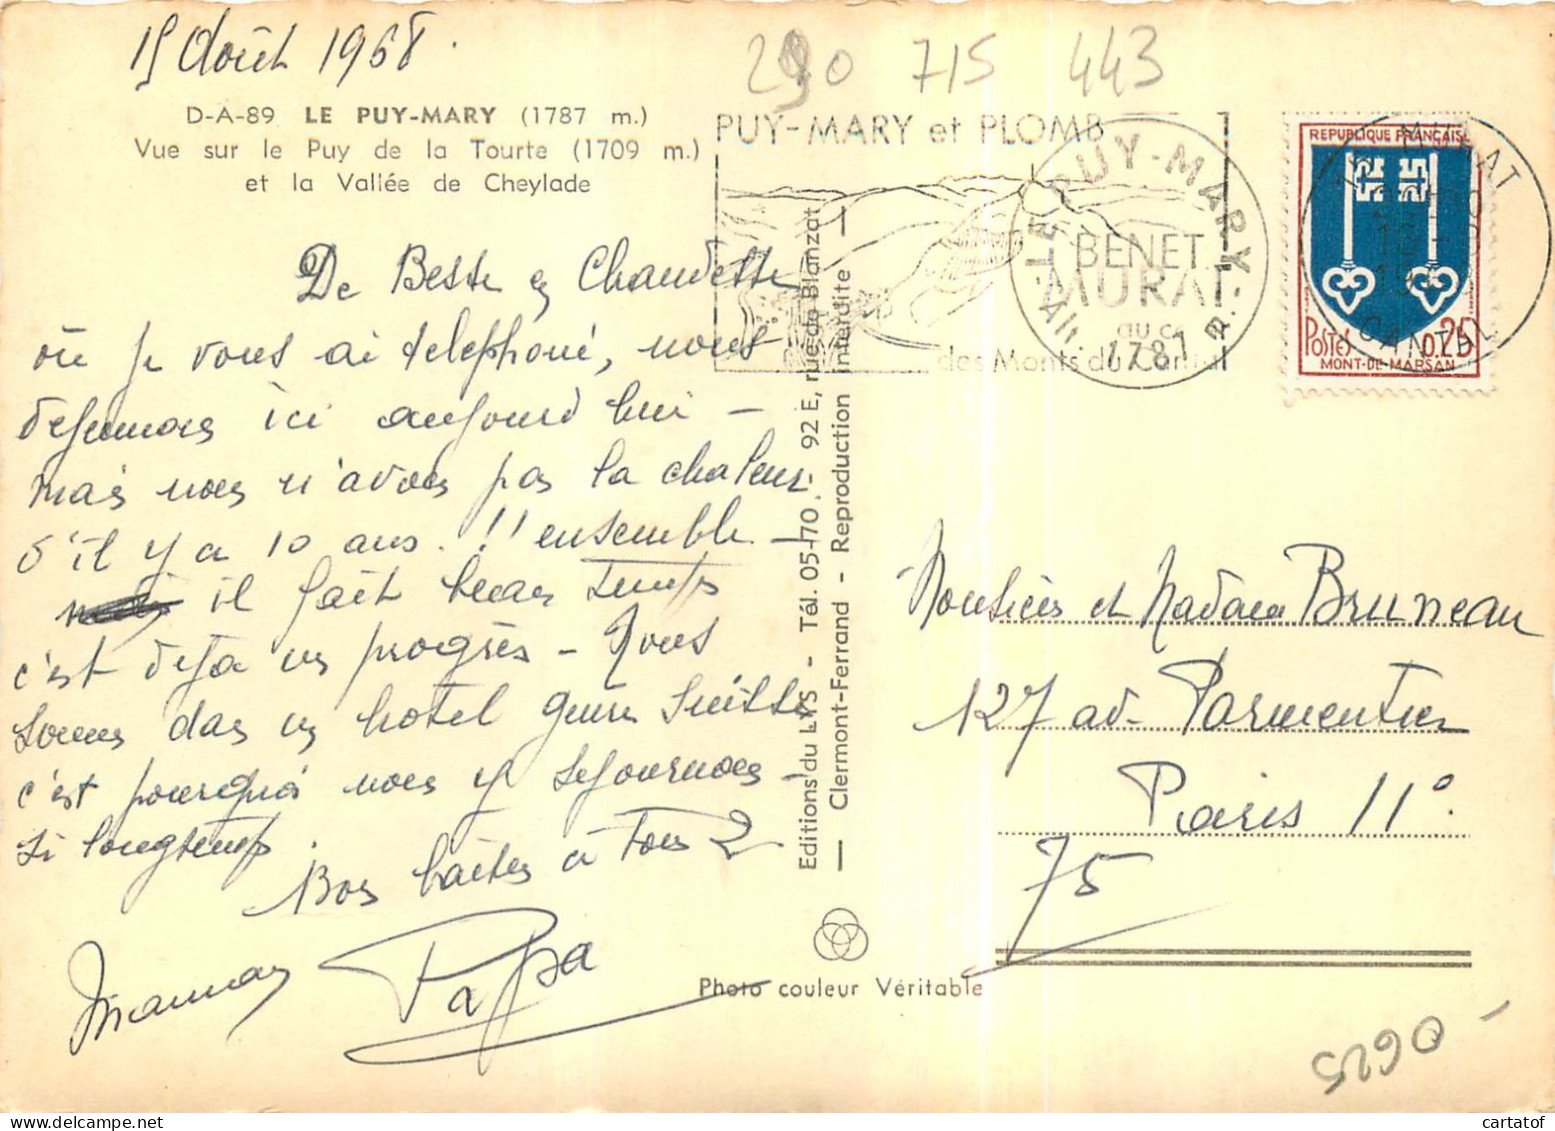 15 Août 1968.
290 715 443
D-A-89 LE PUY-MARY (1787 m.)
Vue sur le Puy de la Tourte (1709 m.)
et la Vallée de Cheylade
De Besse en Chandesse
où je vous ai telephoné, nous
dejeunons ici aujourd'hui —
mais nous n'avons pas la chaleur
d'il y a 10 ans. !! ensemble —
il fait beau temps
c'est deja un progrès — Nous
sommes dans un hotel genre Suisse
c'est pourquoi nous y sejournons —
si longtemps.
Bons baisers à tous 2
maman Papa
PUY-MARY et PLOMB
des Monts du Cantal
LE PUY-MARY
BENET
MURAT
Alt. 1787
REPUBLIQUE FRANÇAISE
POSTES 0,25
MONT-DE-MARSAN
MURAT
CANTAL
Editions du LYS - Tél. 05-70. 92 E, rue de Blanzat
— Clermont-Ferrand - Reproduction interdite —
Monsieur et Madame Bruneau
127 av. Parmentier
Paris 11°
75
Photo couleur Véritable
5290
cartatof